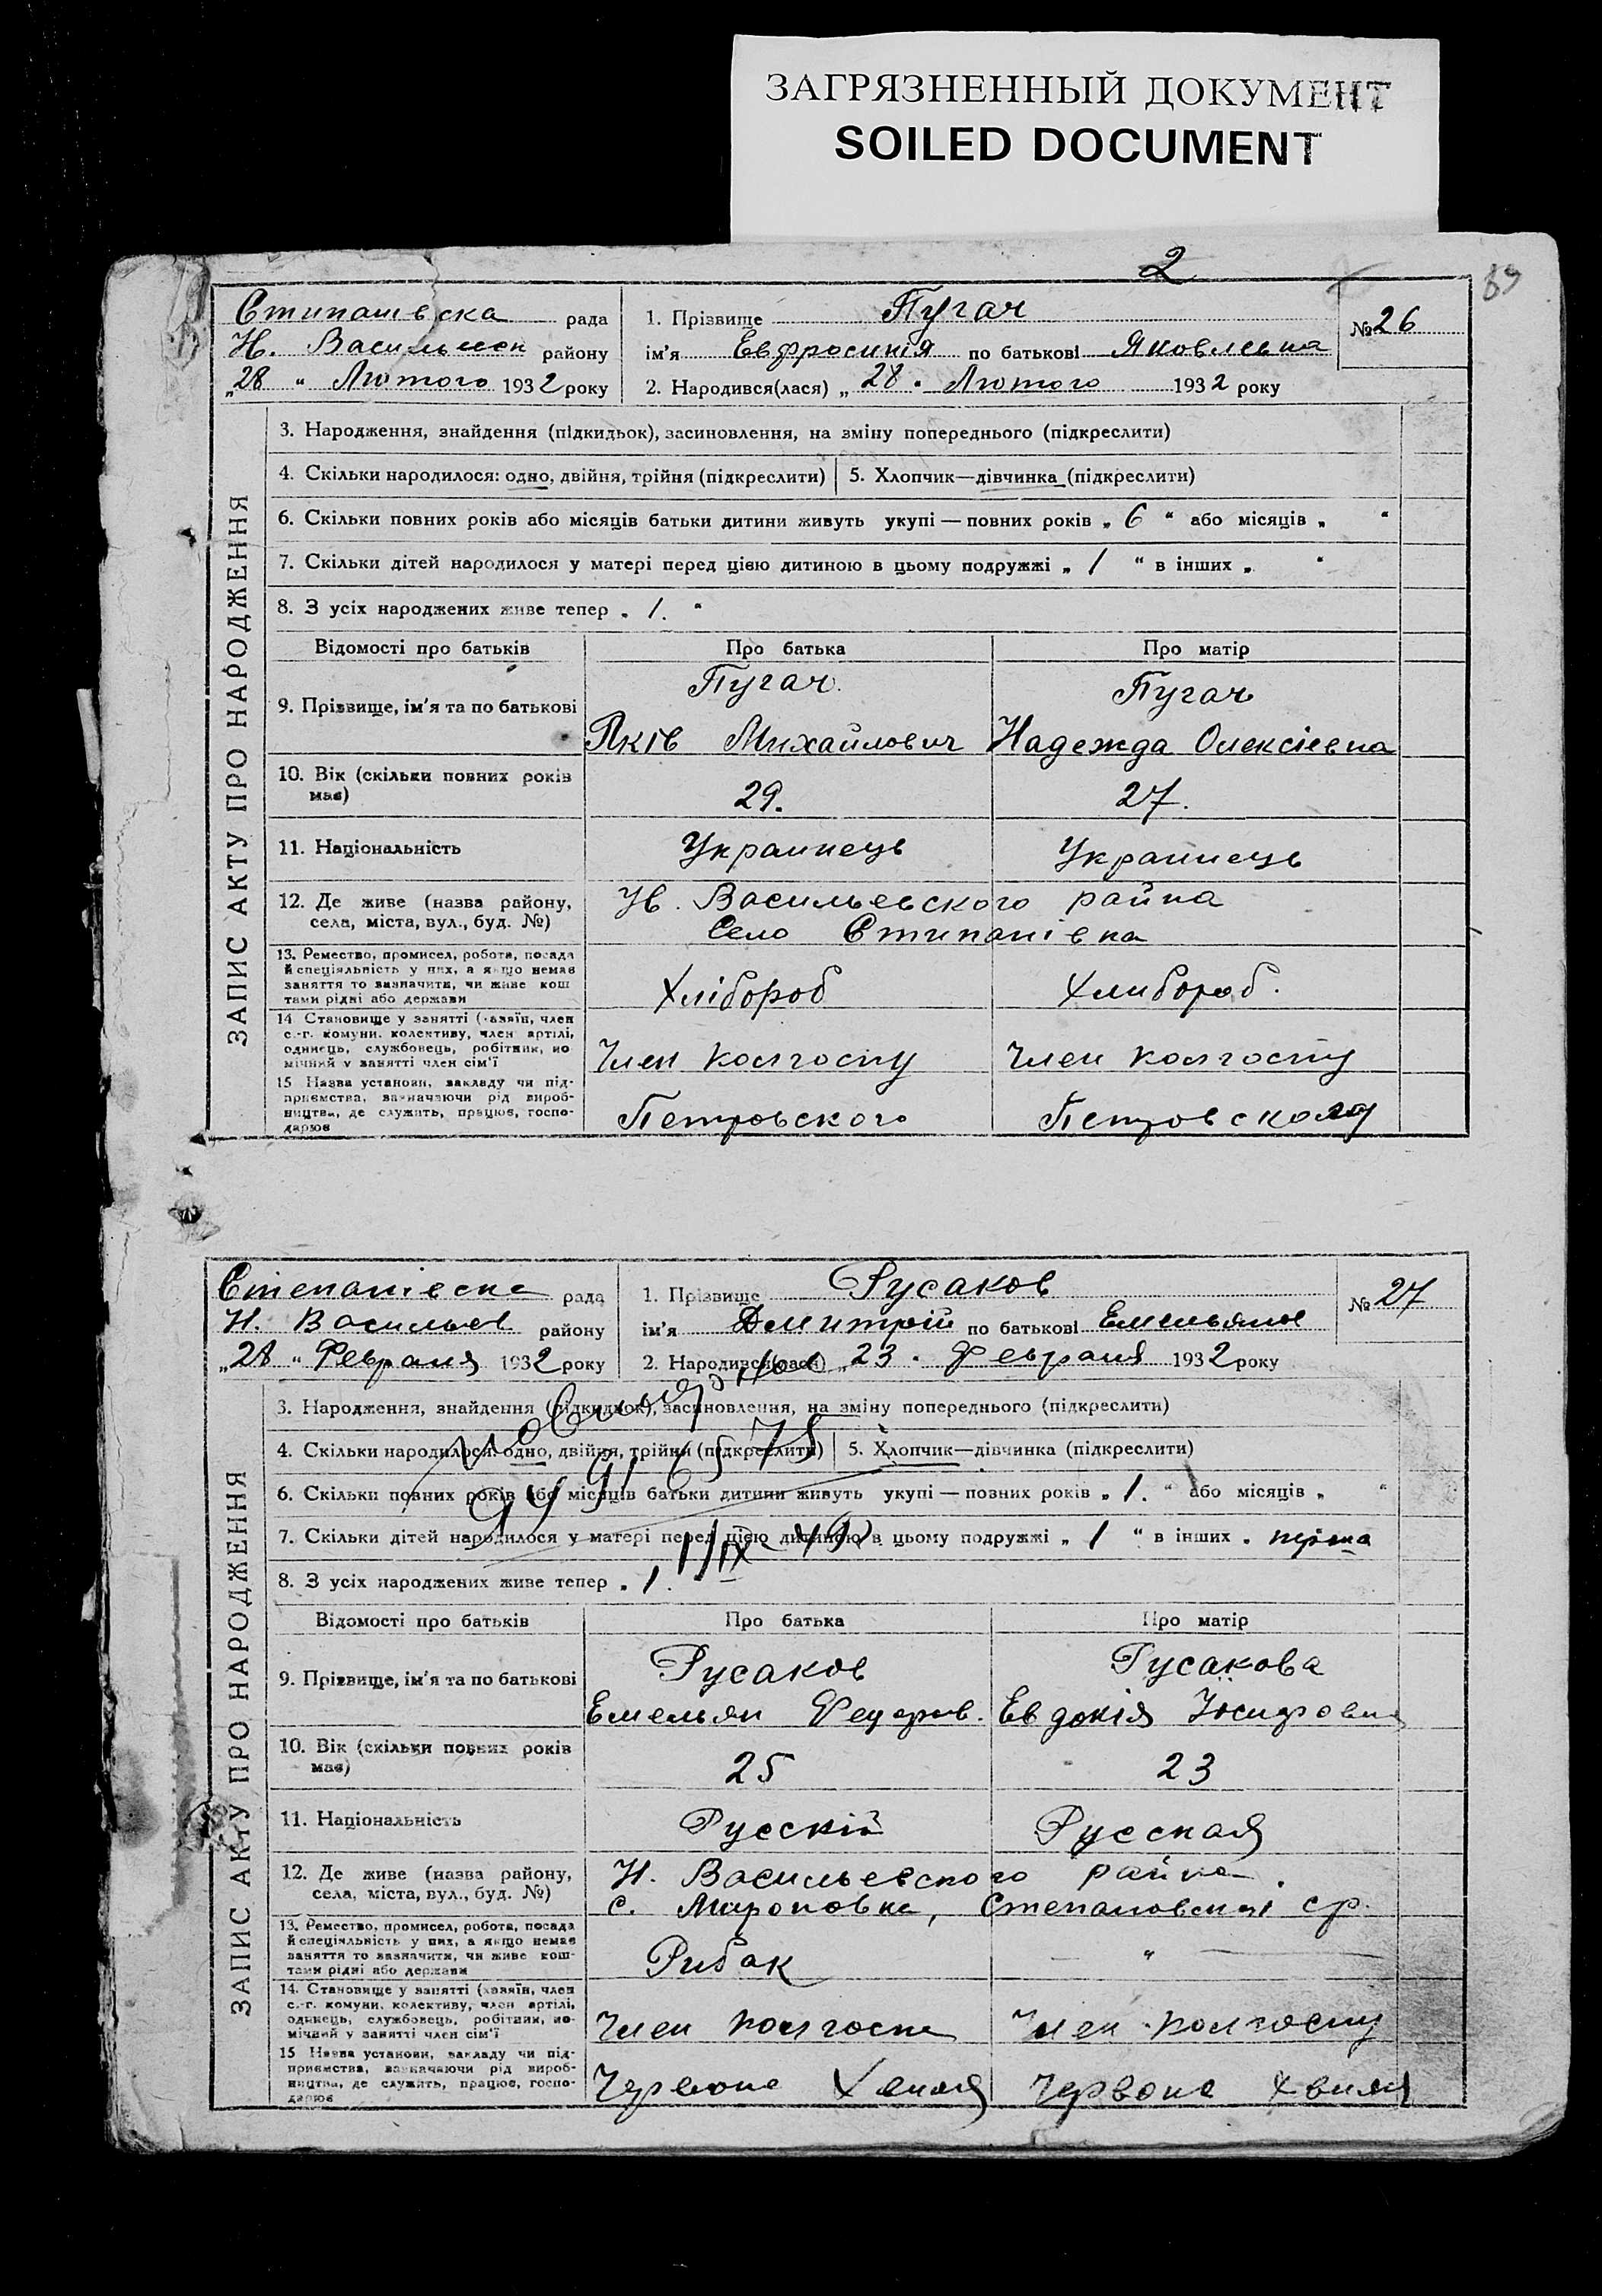 ЗАГРЯЗНЕННЫЙ ДОКУМЕНТ
SOILED DOCUMENT
2
89
Стипанівска рада
Н. Василиєв району
„28 “ Лютого 1932 року
1. Прізвище Пугач
ім'я Евфросинія по батькові Яковлевна
2. Народився(лася) „ 28 “ Лютого 1932 року
№ 26
ЗАПИС АКТУ ПРО НАРОДЖЕННЯ
3. Народження, знайдення (підкидьок), засиновлення, на зміну попереднього (підкреслити)
4. Скільки народилося: одно, двійня, трійня (підкреслити) 5. Хлопчик—дівчинка (підкреслити)
6. Скільки повних років або місяців батьки дитини живуть укупі — повних років „ 6 “ або місяців „ “
7. Скільки дітей народилося у матері перед цією дитиною в цьому подружжі „ 1 “ в інших „ “
8. З усіх народжених живе тепер „ 1. “
Відомості про батьків Про батька Про матір
9. Прізвище, ім'я та по батькові
Пугач Пугач
Яків Михайлович Надежда Олексієвна
10. Вік (скільки повних років має)
29. 27.
11. Національність Украинець Украинець
12. Де живе (назва району, Н. Васильевского район
села, міста, вул., буд. №) Село Стипанівка
13. Ремество, промисел, робота, посада
й спеціяльність у них, а якщо немає
заняття то зазначити, чи живе кош
тами рідні або держави
Хлібороб Хлибороб.
14 Становище у занятті (хазяїн, член
с.-г. комуни, колективу, член артілі,
одинець, службовець, робітник, по
мічний у занятті член сім'ї
Член колгоспу Член колгоспу
15 Назва установи, закладу чи під-
приємства, зазначаючи рід вироб-
ництва, де служить, працює, госпо-
дарює
Петровского Петровского
Степанівска рада
Н. Васильев району
„28 “ Февраля 1932 року
1. Прізвище Русаков
ім'я Дмитрій по батькові Емельянов
2. Народився(лася) „ 23 “ Февраля 1932 року
№ 27
ЗАПИС АКТУ ПРО НАРОДЖЕННЯ
3. Народження, знайдення (підкидьок), засиновлення, на зміну попереднього (підкреслити)
4. Скільки народилося: одно, двійня, трійня (підкреслити) 5. Хлопчик—дівчинка (підкреслити)
6. Скільки повних років або місяців батьки дитини живуть укупі — повних років „ 1. “ або місяців „ “
7. Скільки дітей народилося у матері перед цією дитиною в цьому подружжі „ 1 “ в інших „
8. З усіх народжених живе тепер „ 1. “
Відомості про батьків Про батька Про матір
9. Прізвище, ім'я та по батькові
Русаков Русакова
Емельян Федоров. Евдокія Йосифовна
10. Вік (скільки повних років має)
25 23
11. Національність Русскій Русская
12. Де живе (назва району, Н. Васильевского район.
села, міста, вул., буд. №) с. Мироновка, Степановской ср.
13. Ремество, промисел, робота, посада
й спеціяльність у них, а якщо немає
заняття то зазначити, чи живе кош-
тами рідні або держави
Рибак — “ —
14. Становище у занятті (хазяїн, член
с.-г. комуни, колективу, член артілі,
одинець, службовець, робітник, по-
мічний у занятті член сім'ї
Член колгоспа Член колгоспу
15 Назва установи, закладу чи під-
приємства, зазначаючи рід вироб-
ництва, де служить, працює, госпо-
дарює
Червона Хвиля Червона Хвиля